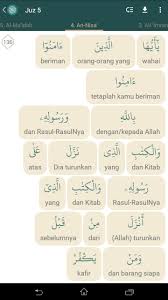 Juz 5
5. Al-Ma'idah 4. An-Nisa' 3. Ali 'Imran
136
يَٰٓأَيُّهَا ٱلَّذِينَ ءَامَنُوٓا۟
wahai orang-orang yang beriman
ءَامِنُوا۟
tetaplah kamu beriman
بِٱللَّهِ وَرَسُولِهِۦ
dengan/kepada Allah dan Rasul-RasulNya
وَٱلْكِتَٰبِ ٱلَّذِى نَزَّلَ عَلَىٰ
dan Kitab yang Dia turunkan atas
رَسُولِهِۦ وَٱلْكِتَٰبِ ٱلَّذِىٓ
Rasul-RasulNya dan Kitab yang
أَنزَلَ مِن قَبْلُ
(Allah) turunkan dari sebelumnya
وَمَن يَكْفُرْ
dan barang siapa kafir